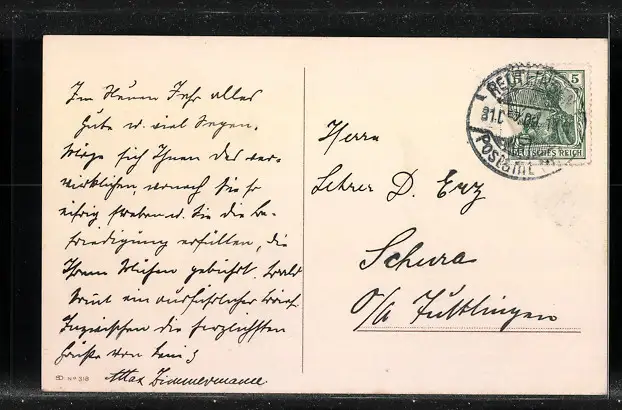 Im Neuen Jahr alles
Gute u. viel Segen.
Möge sich Ihnen das ver-
wirklichen, wonach Sie so
eifrig streben u. Sie die Be-
friedigung erfüllen, die
Ihrem Mühen gebührt. Bald
kommt ein ausführlicher Brief.
Inzwischen die herzlichsten
Grüße von Deinem
Max Zimmermann
Herrn
Lehrer D.
Schura
O/A Tuttlingen
5
DEUTSCHES REICH
31.DEZ.09